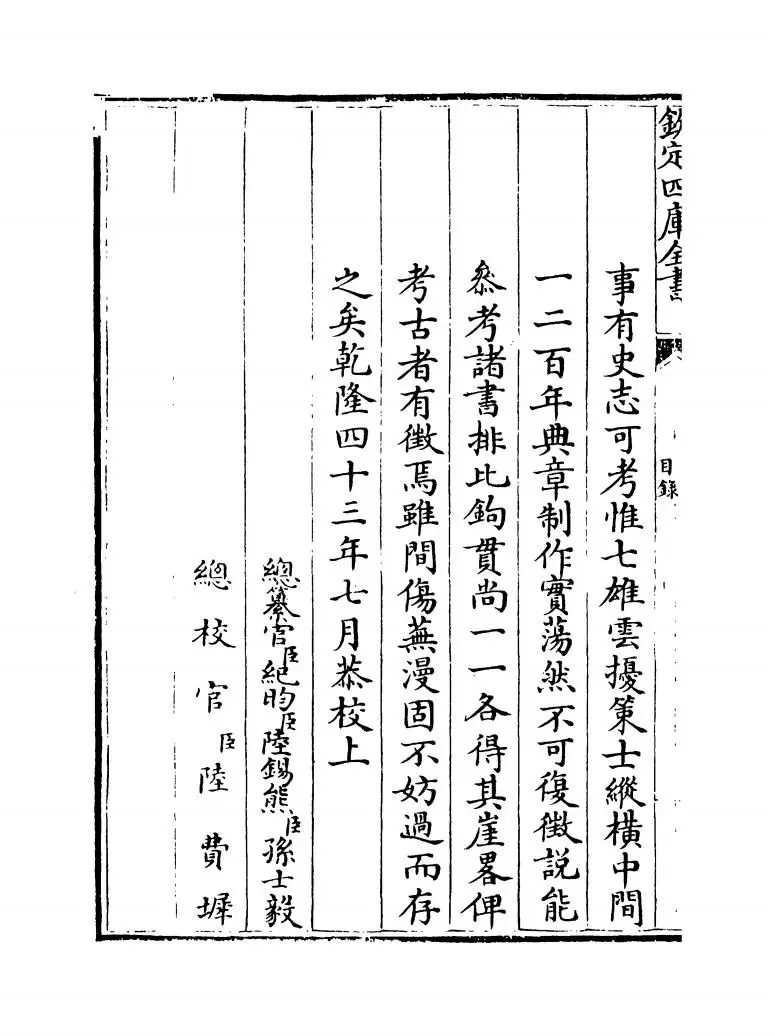 欽定四庫全書
目録
事有史志可考惟七雄雲擾策士縱横中間
一二百年典章制作實蕩然不可復徵説能
叅考諸書排比鉤貫尚一一各得其崖畧俾
考古者有徵焉雖間傷蕪漫固不妨過而存
之矣乾隆四十三年七月恭校上
總纂官臣紀昀臣陸錫熊臣孫士毅
總校官臣陸費墀